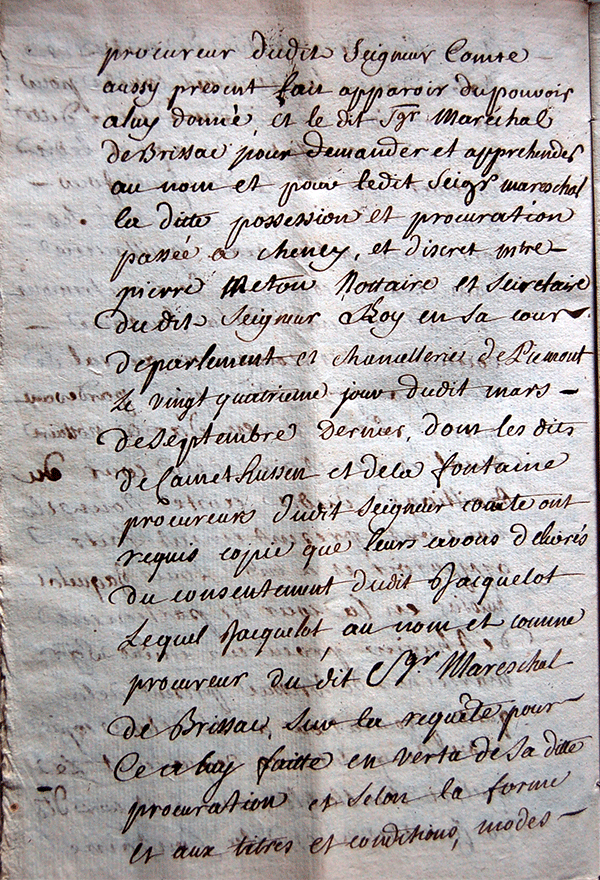 procureur dudit Seigneur Comte
aussy present fait apparoir du pouvoir
a luy donné, et le dit Sgr Maréchal
de Brissac pour demander et apprehender
au nom et pour ledit Seigr mareschal
la ditte possession et procuration
passée a chency, et discret mtre
pierre Meton Nottaire et secretaire
du dit Seigneur Roy en sa cour
de parlement et chancellerie de Piemont
le vingt quatrieme jour dudit mars
de septembre Dernier, dont les dits
de et de la fontaine
procureurs dudit Seigneur comte ont
requis copie que leurs avons delivrés
du consentement dudit Jacquelot
Lequel Jacquelot au nom et comme
procureur du dit Sgr Mareschal
de Brissac, sur la requête pour
Ce a luy faitte en vertu de Sa ditte
procuration et selon la forme
et aux titres et conditions, modes